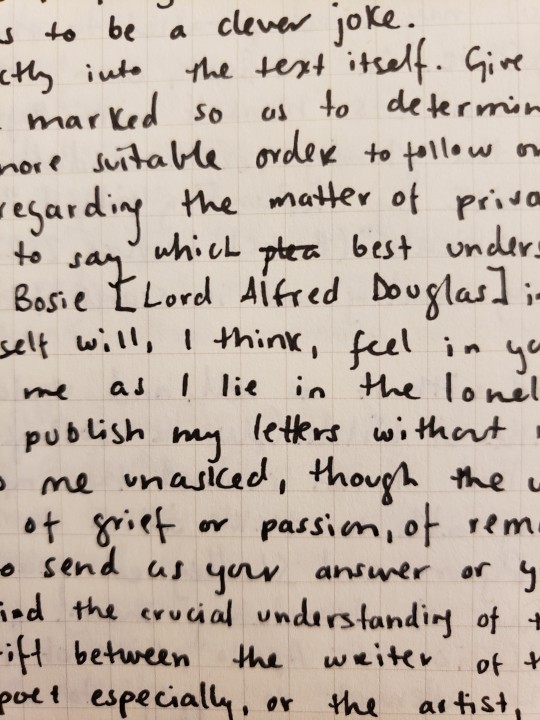 s to be a clever joke.
ctly into the text itself. Give
marked so as to determin
more suitable order to follow on
regarding the matter of priva
to say which plea best unders
Bosie [Lord Alfred Douglas] i
self will, I think, feel in yo
me as I lie in the lonel
publish my letters without
o me unasked, though the
of grief or passion, of rem
o send as your answer or y
ind the crucial understanding of t
rift between the writer of t
poet especially, or the artist,